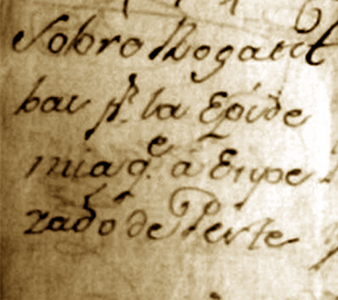 Sobre Rogatt
bas pr la Epide
mia qe a Enpe
zado de Peste